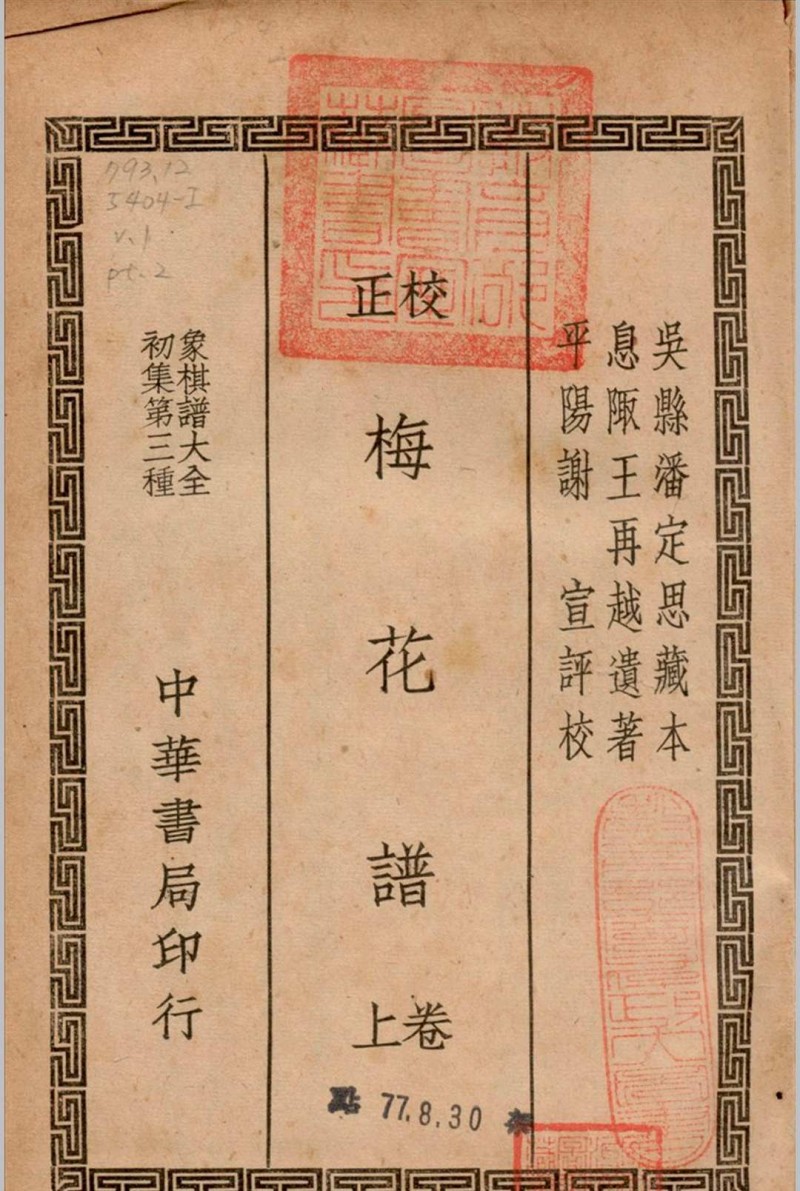 吳縣潘定思藏本
息陬王再越遺著
平陽謝宣評校
校正
梅花譜
卷上
象棋譜大全
初集第三種
中華書局印行
793.12
5404-I
v.1
pt.2
點 77.8.30